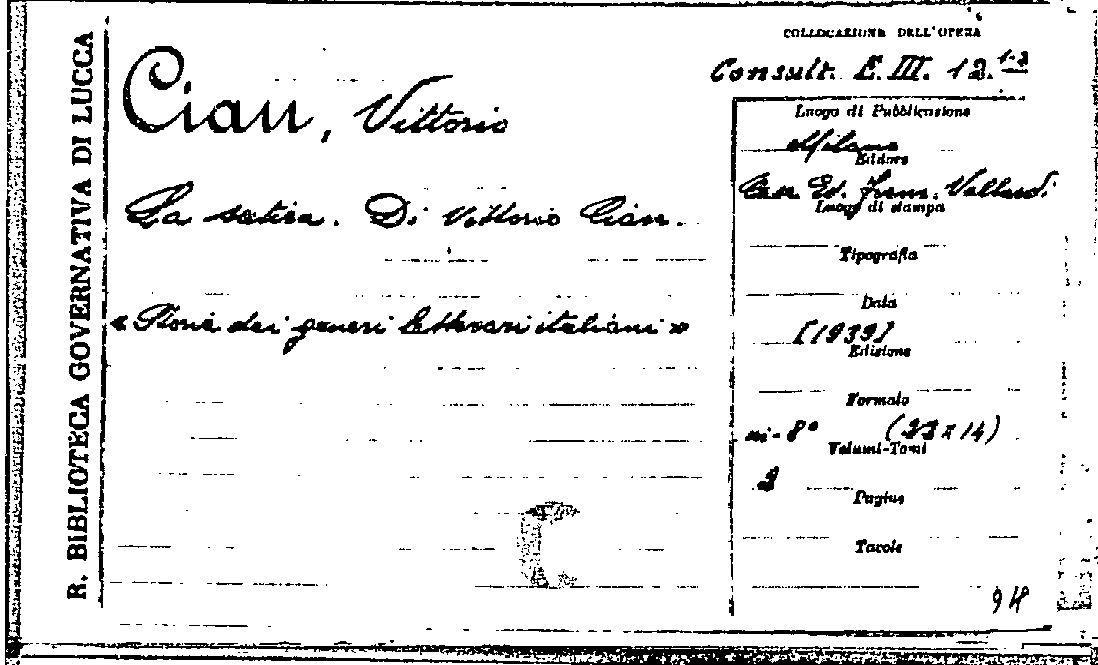 R. BIBLIOTECA GOVERNATIVA DI LUCCA
COLLOCAZIONE DELL'OPERA
Consult. E. III. 12. 1-2
Cian, Vittorio
La satira. Di Vittorio Cian.
« Storia dei generi letterari italiani »
Luogo di Pubblicazione
Milano
Editore
Casa Ed. Franc. Vallardi
Luogo di stampa
Tipografia
Data
[1939]
Edizione
Formato
in-8° (23 x 14)
Volumi-Tomi
2
Pagine
Tavole
C